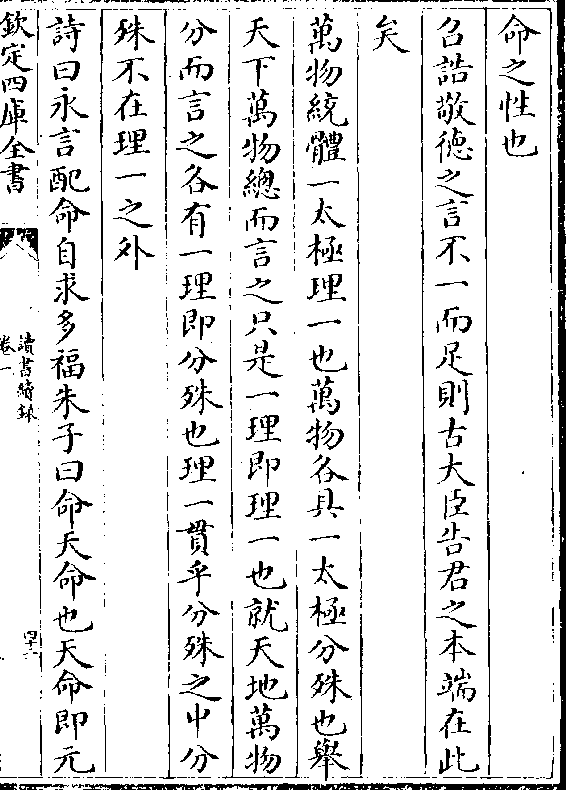 命之性也
召誥敬德之言不一而足則古大臣告君之本端在此
矣
萬物統體一太極理一也萬物各具一太極分殊也舉
天下萬物總而言之只是一理即理一也就天地萬物
分而言之各有一理即分殊也理一貫乎分殊之中分
殊不在理一之外
詩曰永言配命自求多福朱子曰命天命也天命即元
欽定四庫全書
讀書續錄
卷一